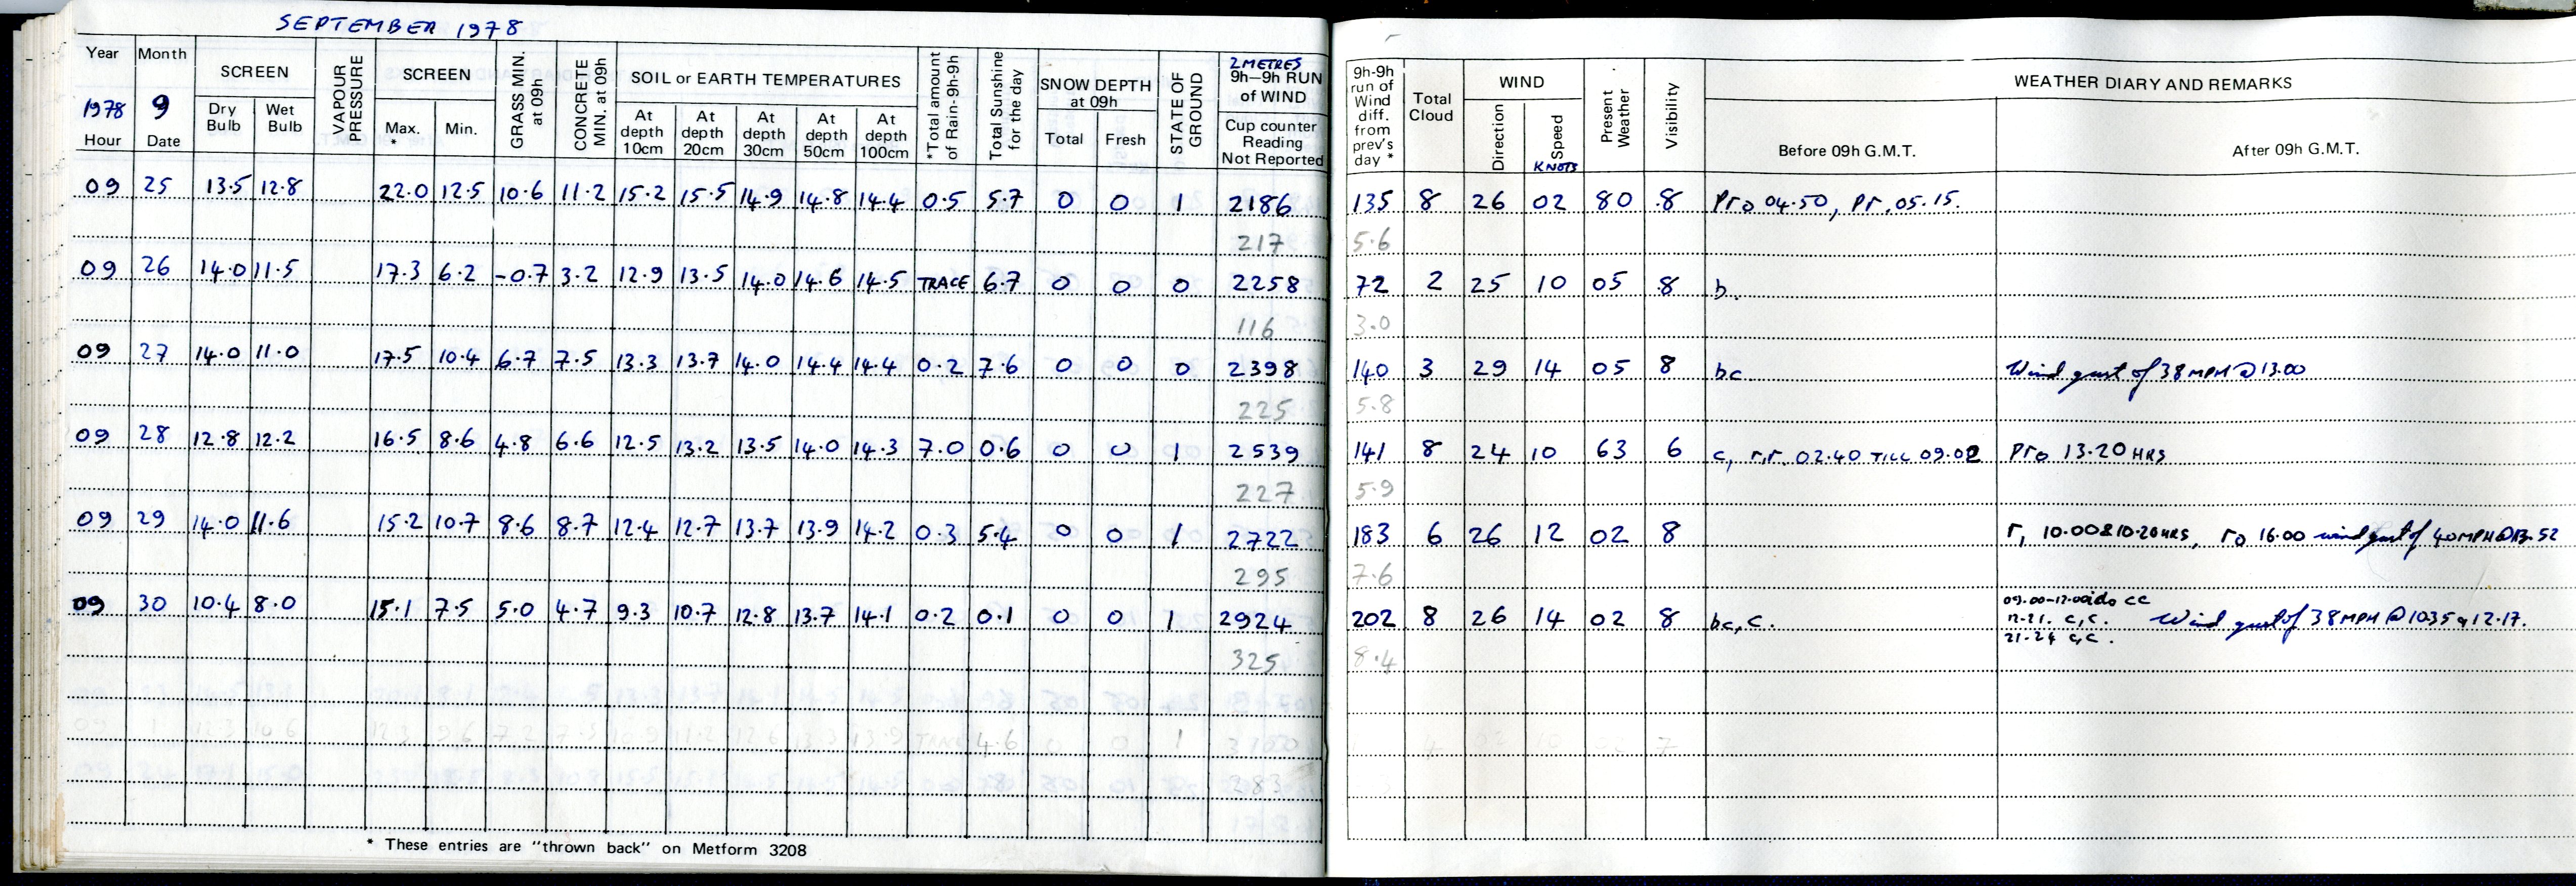 SEPTEMBER 1978
Year Month SCREEN VAPOUR PRESSURE SCREEN GRASS MIN. at 09h CONCRETE MIN. at 09h SOIL or EARTH TEMPERATURES *Total amount of Rain-9h-9h Total Sunshine for the day SNOW DEPTH at 09h STATE OF GROUND 2 METRES 9h–9h RUN of WIND 9h-9h run of Wind diff. from prev's day * Total Cloud WIND Present Weather Visibility WEATHER DIARY AND REMARKS
1978 9 Dry Bulb Wet Bulb Max. * Min. At depth 10cm At depth 20cm At depth 30cm At depth 50cm At depth 100cm Total Fresh Cup counter Reading Not Reported Direction Speed KNOTS Before 09h G.M.T. After 09h G.M.T.
Hour Date
09 25 13.5 12.8 22.0 12.5 10.6 11.2 15.2 15.5 14.9 14.8 14.4 0.5 5.7 0 0 1 2186 135 8 26 02 80 8 Pro 04.50, Pr. 05.15.
217 5.6
09 26 14.0 11.5 17.3 6.2 -0.7 3.2 12.9 13.5 14.0 14.6 14.5 TRACE 6.7 0 0 0 2258 72 2 25 10 05 8 b.
116 3.0
09 27 14.0 11.0 17.5 10.4 6.7 7.5 13.3 13.7 14.0 14.4 14.4 0.2 7.6 0 0 0 2398 140 3 29 14 05 8 bc Wind gust of 38 MPH @ 13.00
225 5.8
09 28 12.8 12.2 16.5 8.6 4.8 6.6 12.5 13.2 13.5 14.0 14.3 7.0 0.6 0 0 1 2539 141 8 24 10 63 6 c, r,r. 02.40 TILL 09.02 Pro 13.20 HRS
227 5.9
09 29 14.0 11.6 15.2 10.7 8.6 8.7 12.4 12.7 13.7 13.9 14.2 0.3 5.4 0 0 1 2722 183 6 26 12 02 8 r, 10.00 & 10.20 HRS, ro 16.00 wind gust of 40 MPH @ 13.52
295 7.6
09 30 10.4 8.0 15.1 7.5 5.0 4.7 9.3 10.7 12.8 13.7 14.1 0.2 0.1 0 0 1 2924 202 8 26 14 02 8 bc, c. 09.00-12.00 cc
12-21. c, c. Wind gust of 38 MPH @ 1035 & 12.17.
21-24 c, c.
325 8.4
09 1 12.3 10.6 12.3 9.6 7.2 7.3 10.9 11.2 12.6 13.9 TRACE 4.6 0 0 1 3100 4 10 7
283
* These entries are "thrown back" on Metform 3208